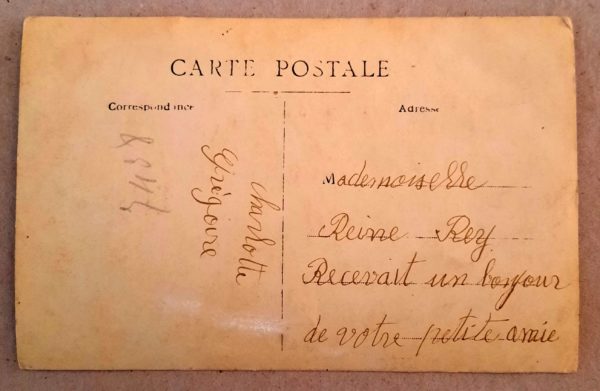 CARTE POSTALE
Correspondance
Charlotte
Grégoire
Adresse
Mademoiselle
Reine Rey
Recevait un bonjour
de votre petite amie